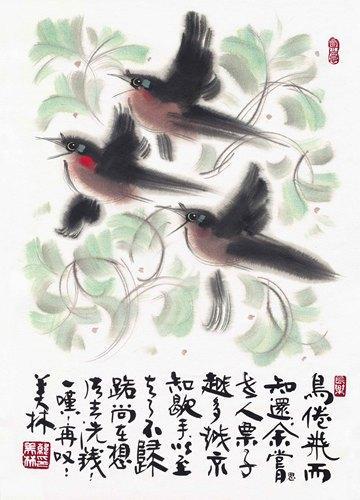 鳥倦飛而
知還余嘗思
人票子
越多越不
知歇手以至
了不歸
路尚在想
法去洗钱!
一嘆再叹‥
美林